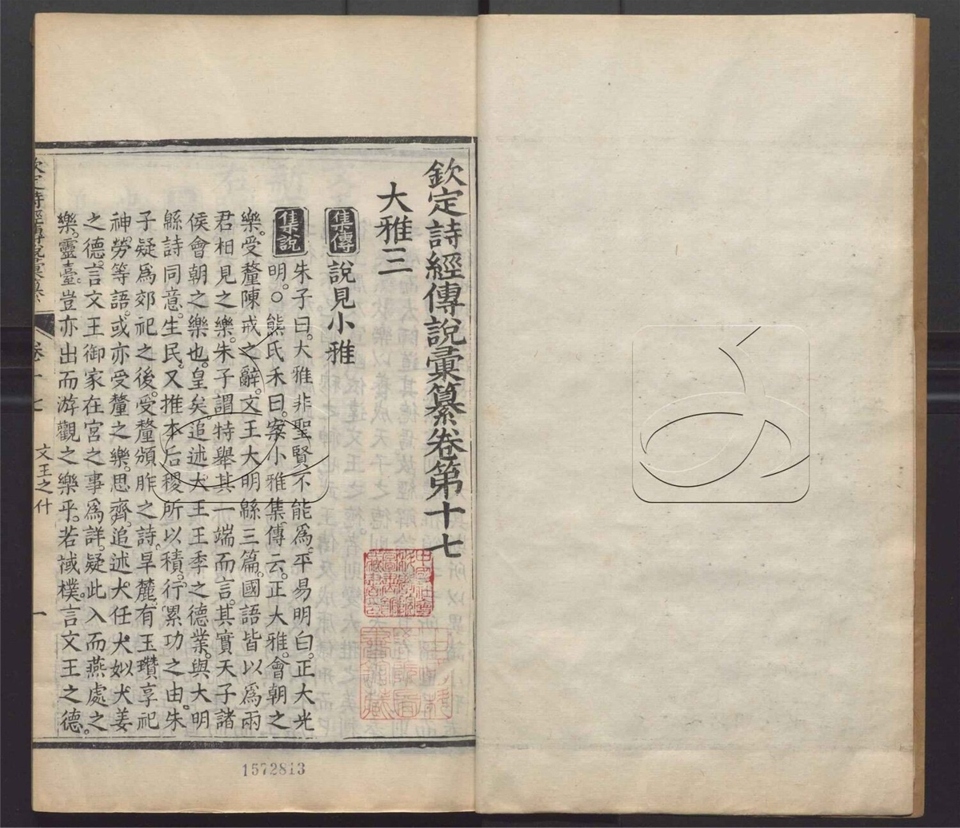 欽定詩經傳說彙纂卷第十七
大雅三
集傳 說見小雅
集說 朱子曰。大雅非聖賢不能爲。平易明白。正大光
明。○熊氏禾曰。案小雅集傳云。正大雅。會朝之
樂。受釐陳戒之辭。文王大明緜三篇。國語皆以爲兩
君相見之樂。朱子謂特舉其一端而言。其實天子諸
侯會朝之樂也。皇矣。追述大王王季之德業。與大明
緜詩同意。生民。又推本后稷所以積。行累功之由。朱
子疑爲郊祀之後。受釐頒胙之詩。旱麓。有玉瓚享祀
神勞等語。或亦受釐之樂。思齊。追述大任大姒大姜
之德。言文王御家在宮之事爲詳。疑此入而燕處之
樂。靈臺。豈亦出而游觀之樂乎。若棫樸。言文王之德。
欽定詩經傳說彙纂 卷十七 文王之什 一
1572813